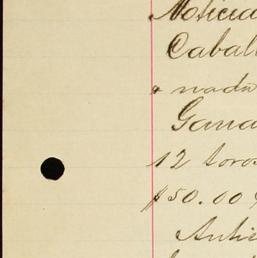 Noticia
Cabal
nada
Gana
12 toros
$50.00
Antie